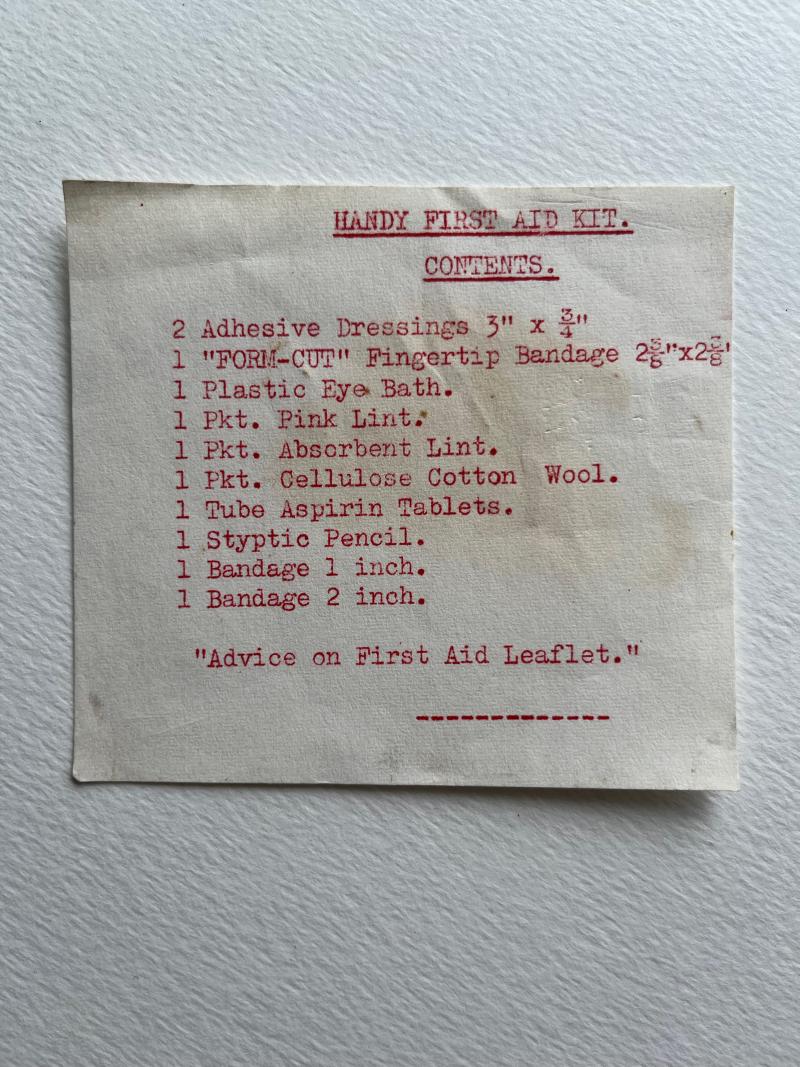 HANDY FIRST AID KIT.
CONTENTS.
2 Adhesive Dressings 3" x ¾"
1 "FORM-CUT" Fingertip Bandage 2⅜"x2⅜"
1 Plastic Eye Bath.
1 Pkt. Pink Lint.
1 Pkt. Absorbent Lint.
1 Pkt. Cellulose Cotton Wool.
1 Tube Aspirin Tablets.
1 Styptic Pencil.
1 Bandage 1 inch.
1 Bandage 2 inch.
"Advice on First Aid Leaflet."
-------------